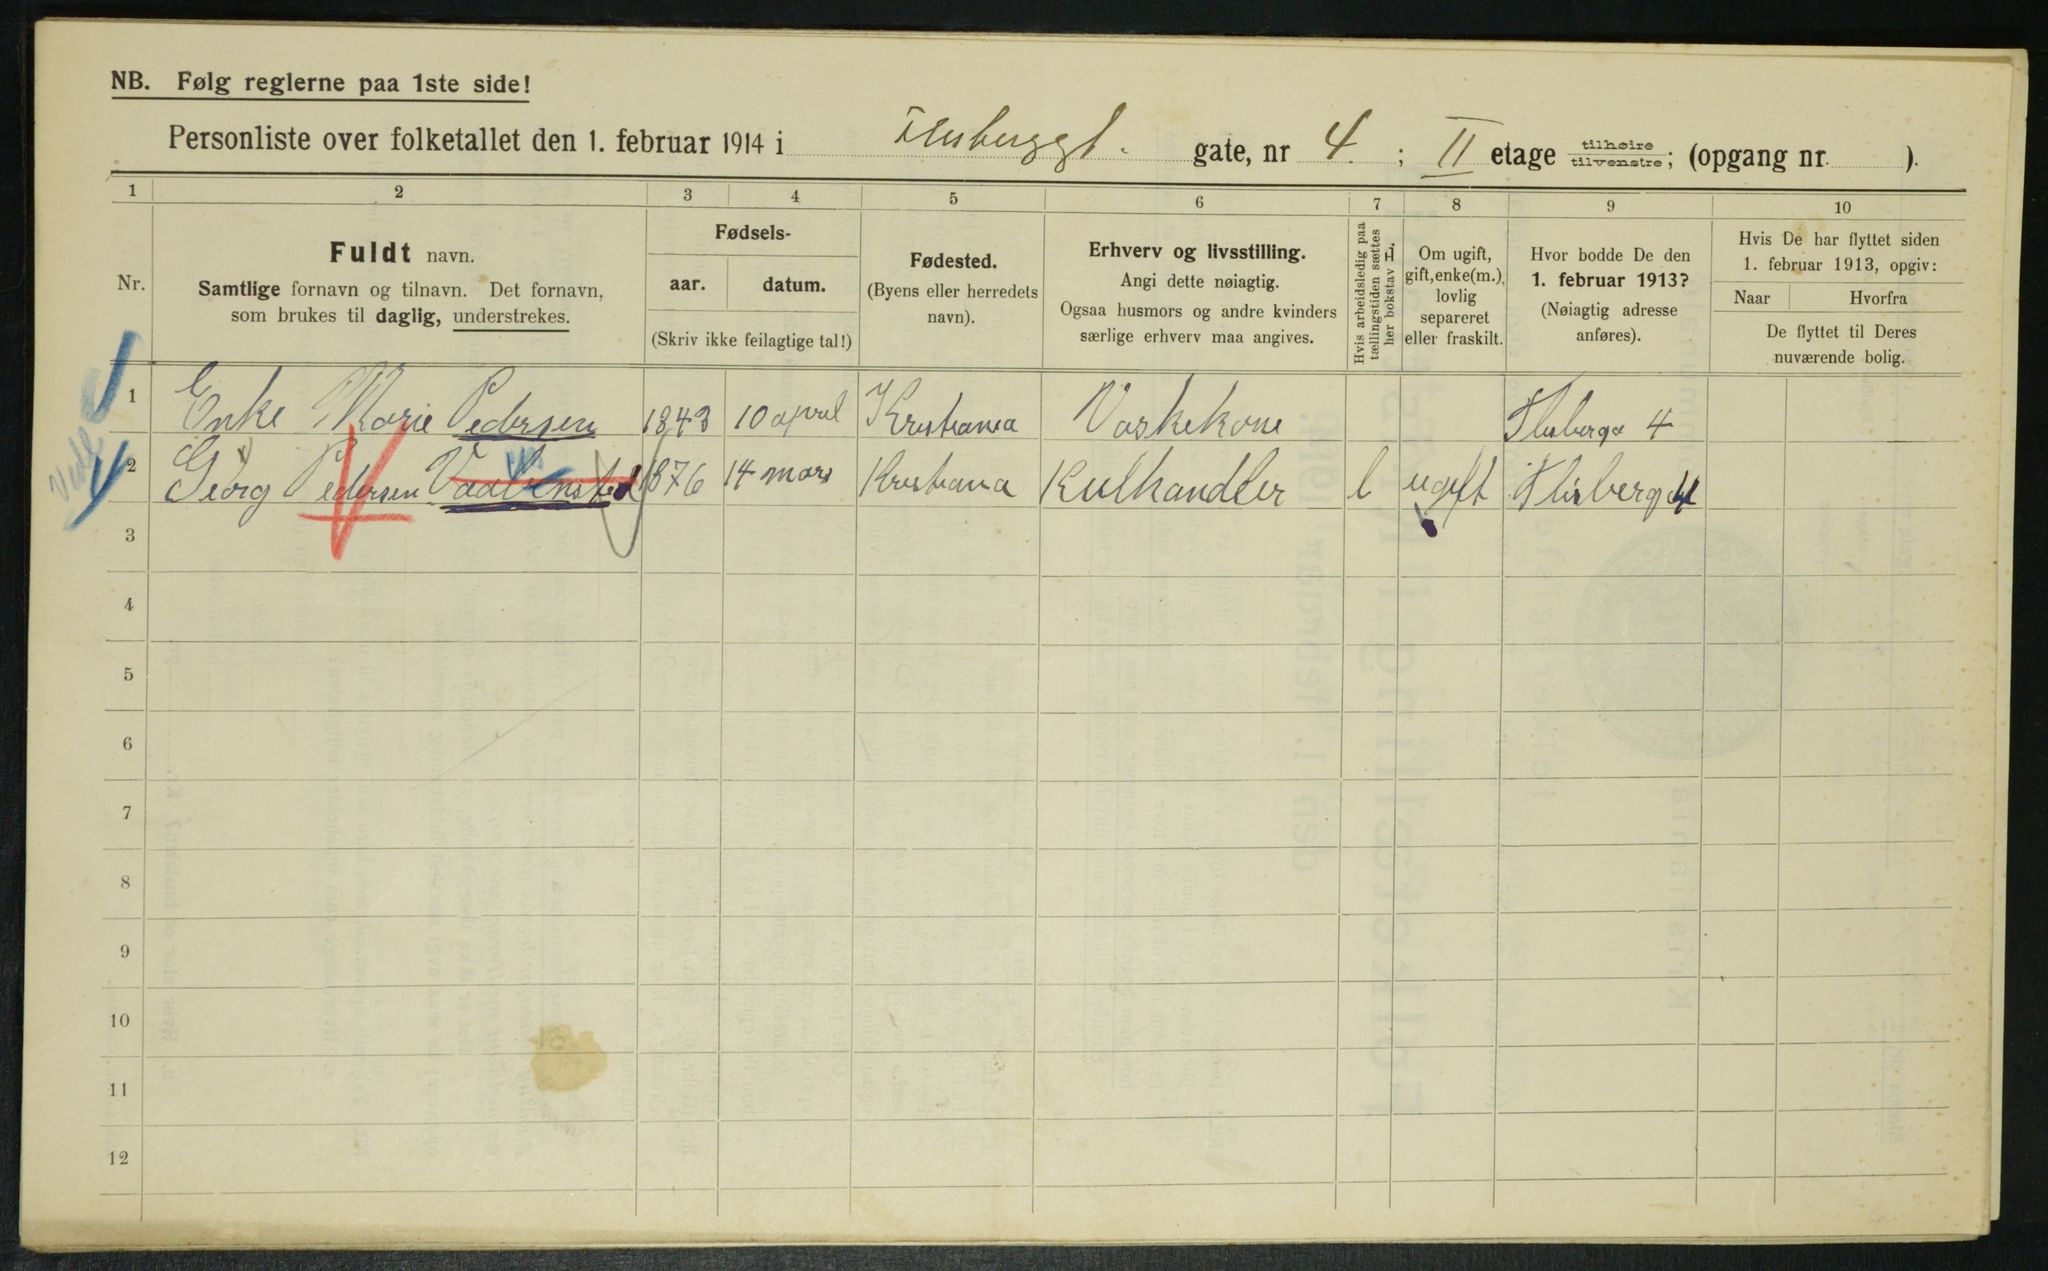 NB. Følg reglerne paa 1ste side!
Personliste over folketallet den 1. februar 1914 i Flisberggt. gate, nr 4. ; II etage tilhøire tilvenstre; (opgang nr. ).
1 2 3 4 5 6 7 8 9 10
Nr.
Fuldt navn.
Samtlige fornavn og tilnavn. Det fornavn,
som brukes til daglig, understrekes.
Fødsels-
aar. datum.
(Skriv ikke feilagtige tal!)
Fødested.
(Byens eller herredets
navn).
Erhverv og livsstilling.
Angi dette nøiagtig.
Ogsaa husmors og andre kvinders
særlige erhverv maa angives.
Hvis arbeidsledig paa
tællingstiden sættes
her bokstav L.
Om ugift,
gift, enke(m.),
lovlig
separeret
eller fraskilt.
Hvor bodde De den
1. februar 1913?
(Nøiagtig adresse
anføres).
Hvis De har flyttet siden
1. februar 1913, opgiv:
Naar Hvorfra
De flyttet til Deres
nuværende bolig.
1 Enke Marie Pedersen 1843 10 april Kristiania Vaskekone Flisberggt 4
2 Georg Pedersen 1876 14 mars Kristiania Kulhandler l ugift Flisberggt 4
3
4
5
6
7
8
9
10
11
12